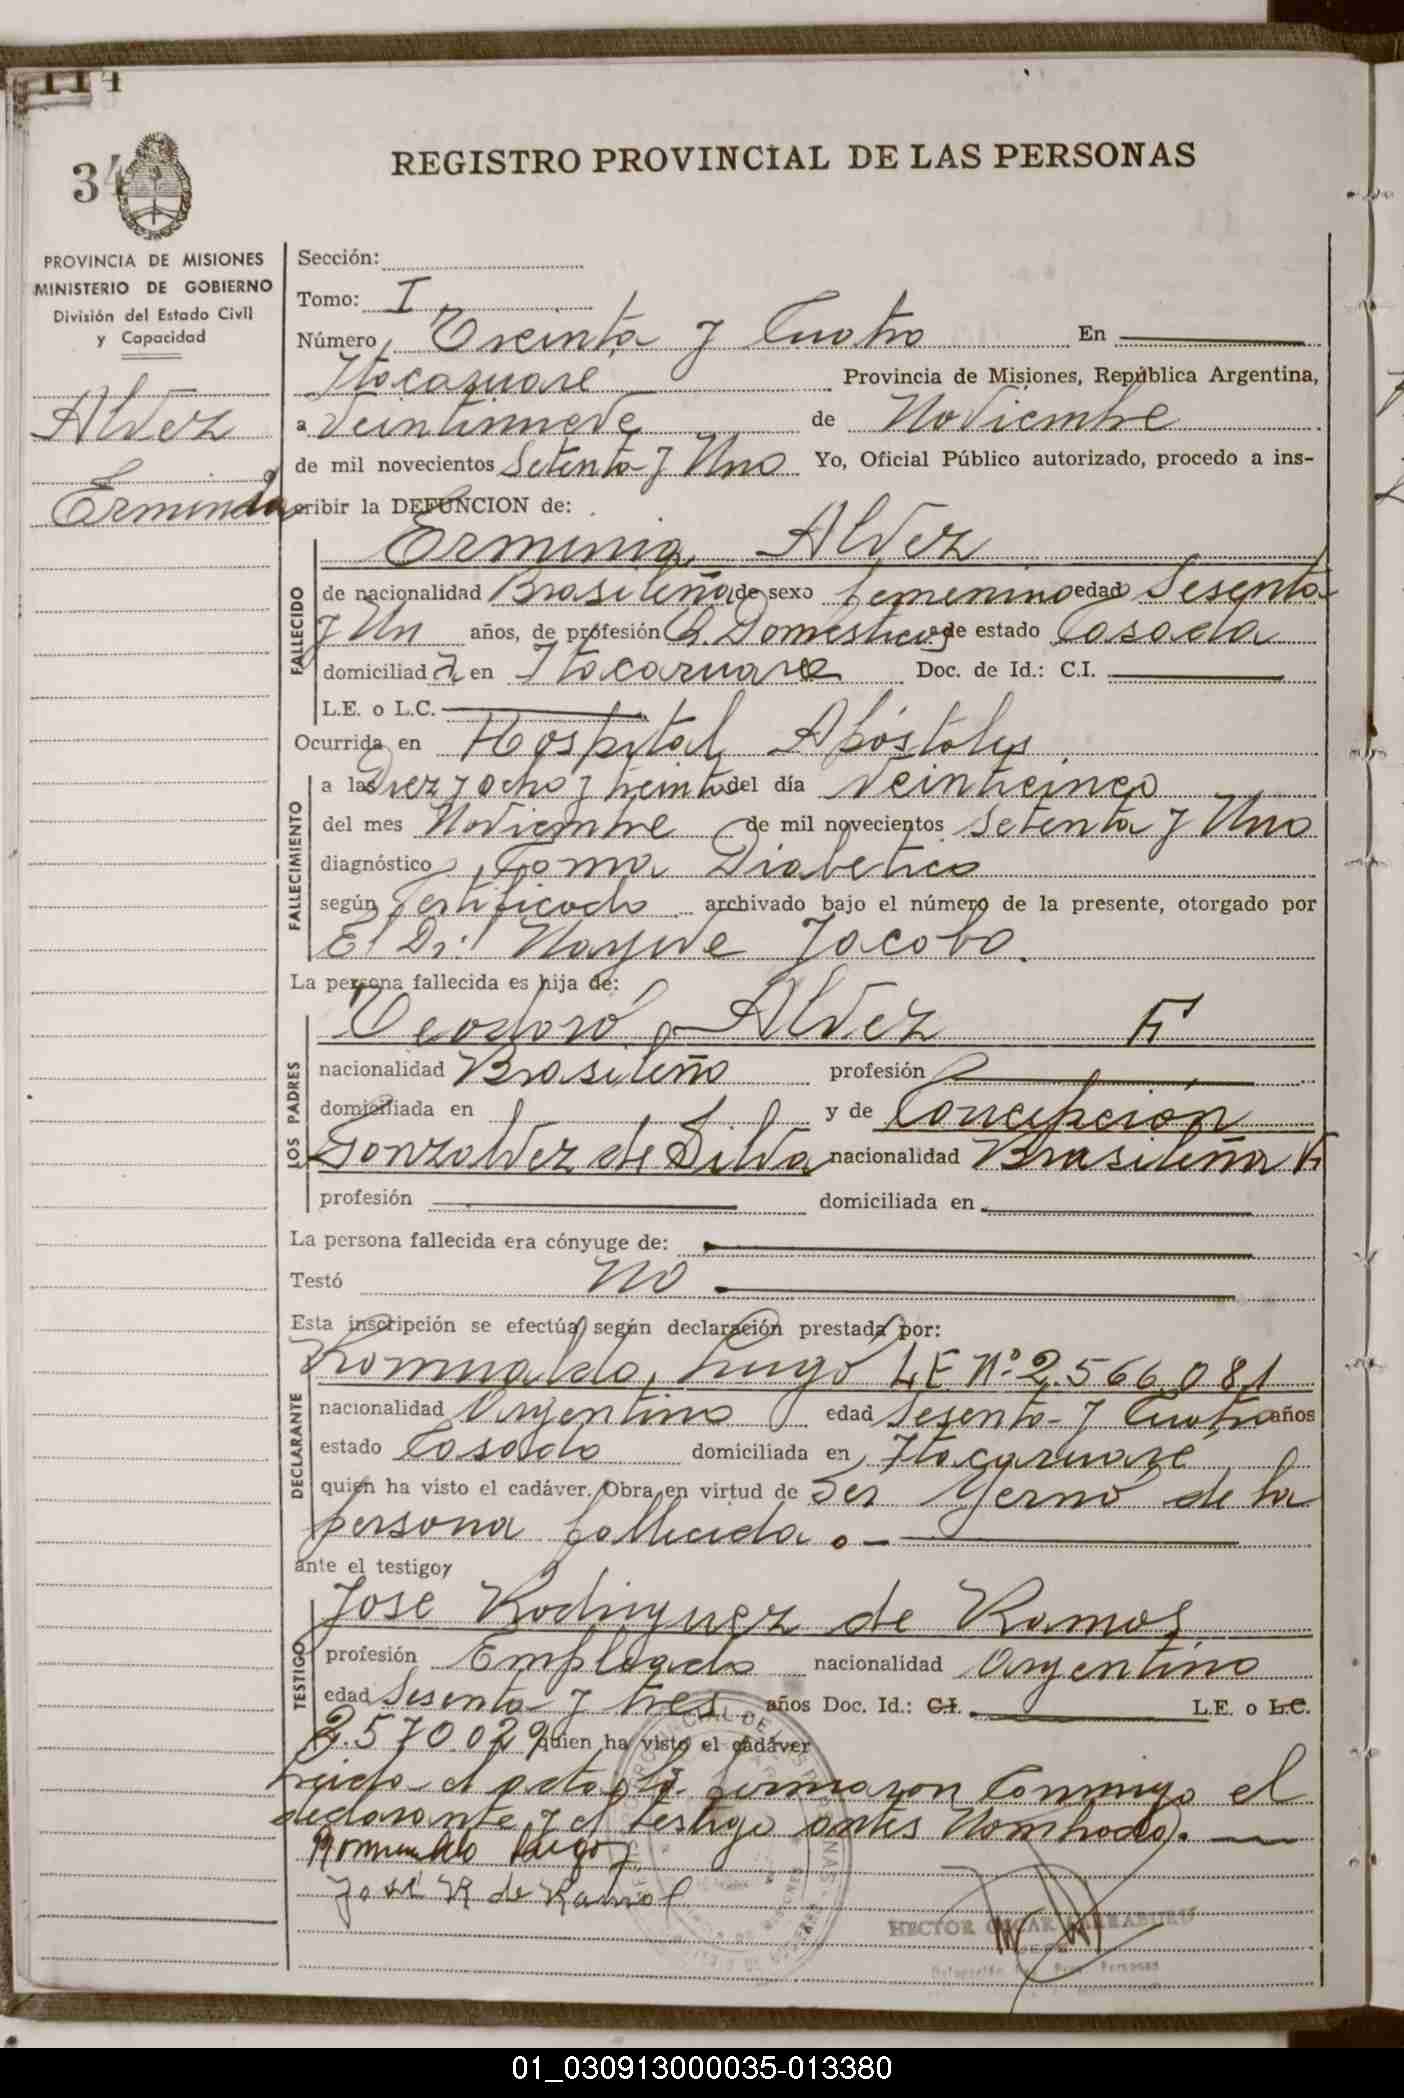 114
34
REGISTRO PROVINCIAL DE LAS PERSONAS
PROVINCIA DE MISIONES
MINISTERIO DE GOBIERNO
División del Estado Civil
y Capacidad
Alvez
Erminda
Sección:
Tomo: I
Número Treinta y Cuatro En
Itacaruare Provincia de Misiones, República Argentina,
a Veintinueve de Noviembre
de mil novecientos Setenta y Uno Yo, Oficial Público autorizado, procedo a ins-
cribir la DEFUNCION de:
Erminia Alvez
FALLECIDO
de nacionalidad Brasileña de sexo femenino edad Sesenta
y Un años, de profesión Q. Domesticos de estado Casada
domiciliada en Itacaruare Doc. de Id.: C.I.
L.E. o L.C.
Ocurrida en Hospital Apóstoles
FALLECIMIENTO
a las Diez y ocho y treinta del día Veinticinco
del mes Noviembre de mil novecientos Setenta y Uno
diagnóstico Coma Diabetico
según Certificado archivado bajo el número de la presente, otorgado por
El Dr: Jacobo.
La persona fallecida es hija de:
LOS PADRES
Teodoro Alvez
nacionalidad Brasileño profesión
domiciliada en y de Concepción
Gonzalvez de Silva nacionalidad Brasileña
profesión domiciliada en
La persona fallecida era cónyuge de:
Testó No
Esta inscripción se efectúa según declaración prestada por:
DECLARANTE
Romualdo Lugo L.E. Nº 2.566.081
nacionalidad Argentino edad Sesenta y Cuatro años
estado Casado domiciliada en Itacaruaré
quien ha visto el cadáver. Obra en virtud de Ser Yerno de la
persona fallecida.-
ante el testigo y
TESTIGO
Jose Rodriguez de Ramos
profesión Empleado nacionalidad Argentino
edad Sesenta y tres años Doc. Id.: C.I. L.E. o L.C.
2.570.029 quien ha visto el cadáver
Leida el acta la firmaron Conmigo el
declarante y el testigo antes Nombrado.
Romualdo Lugo
José R de Ramos
HECTOR OSCAR
01_030913000035-013380